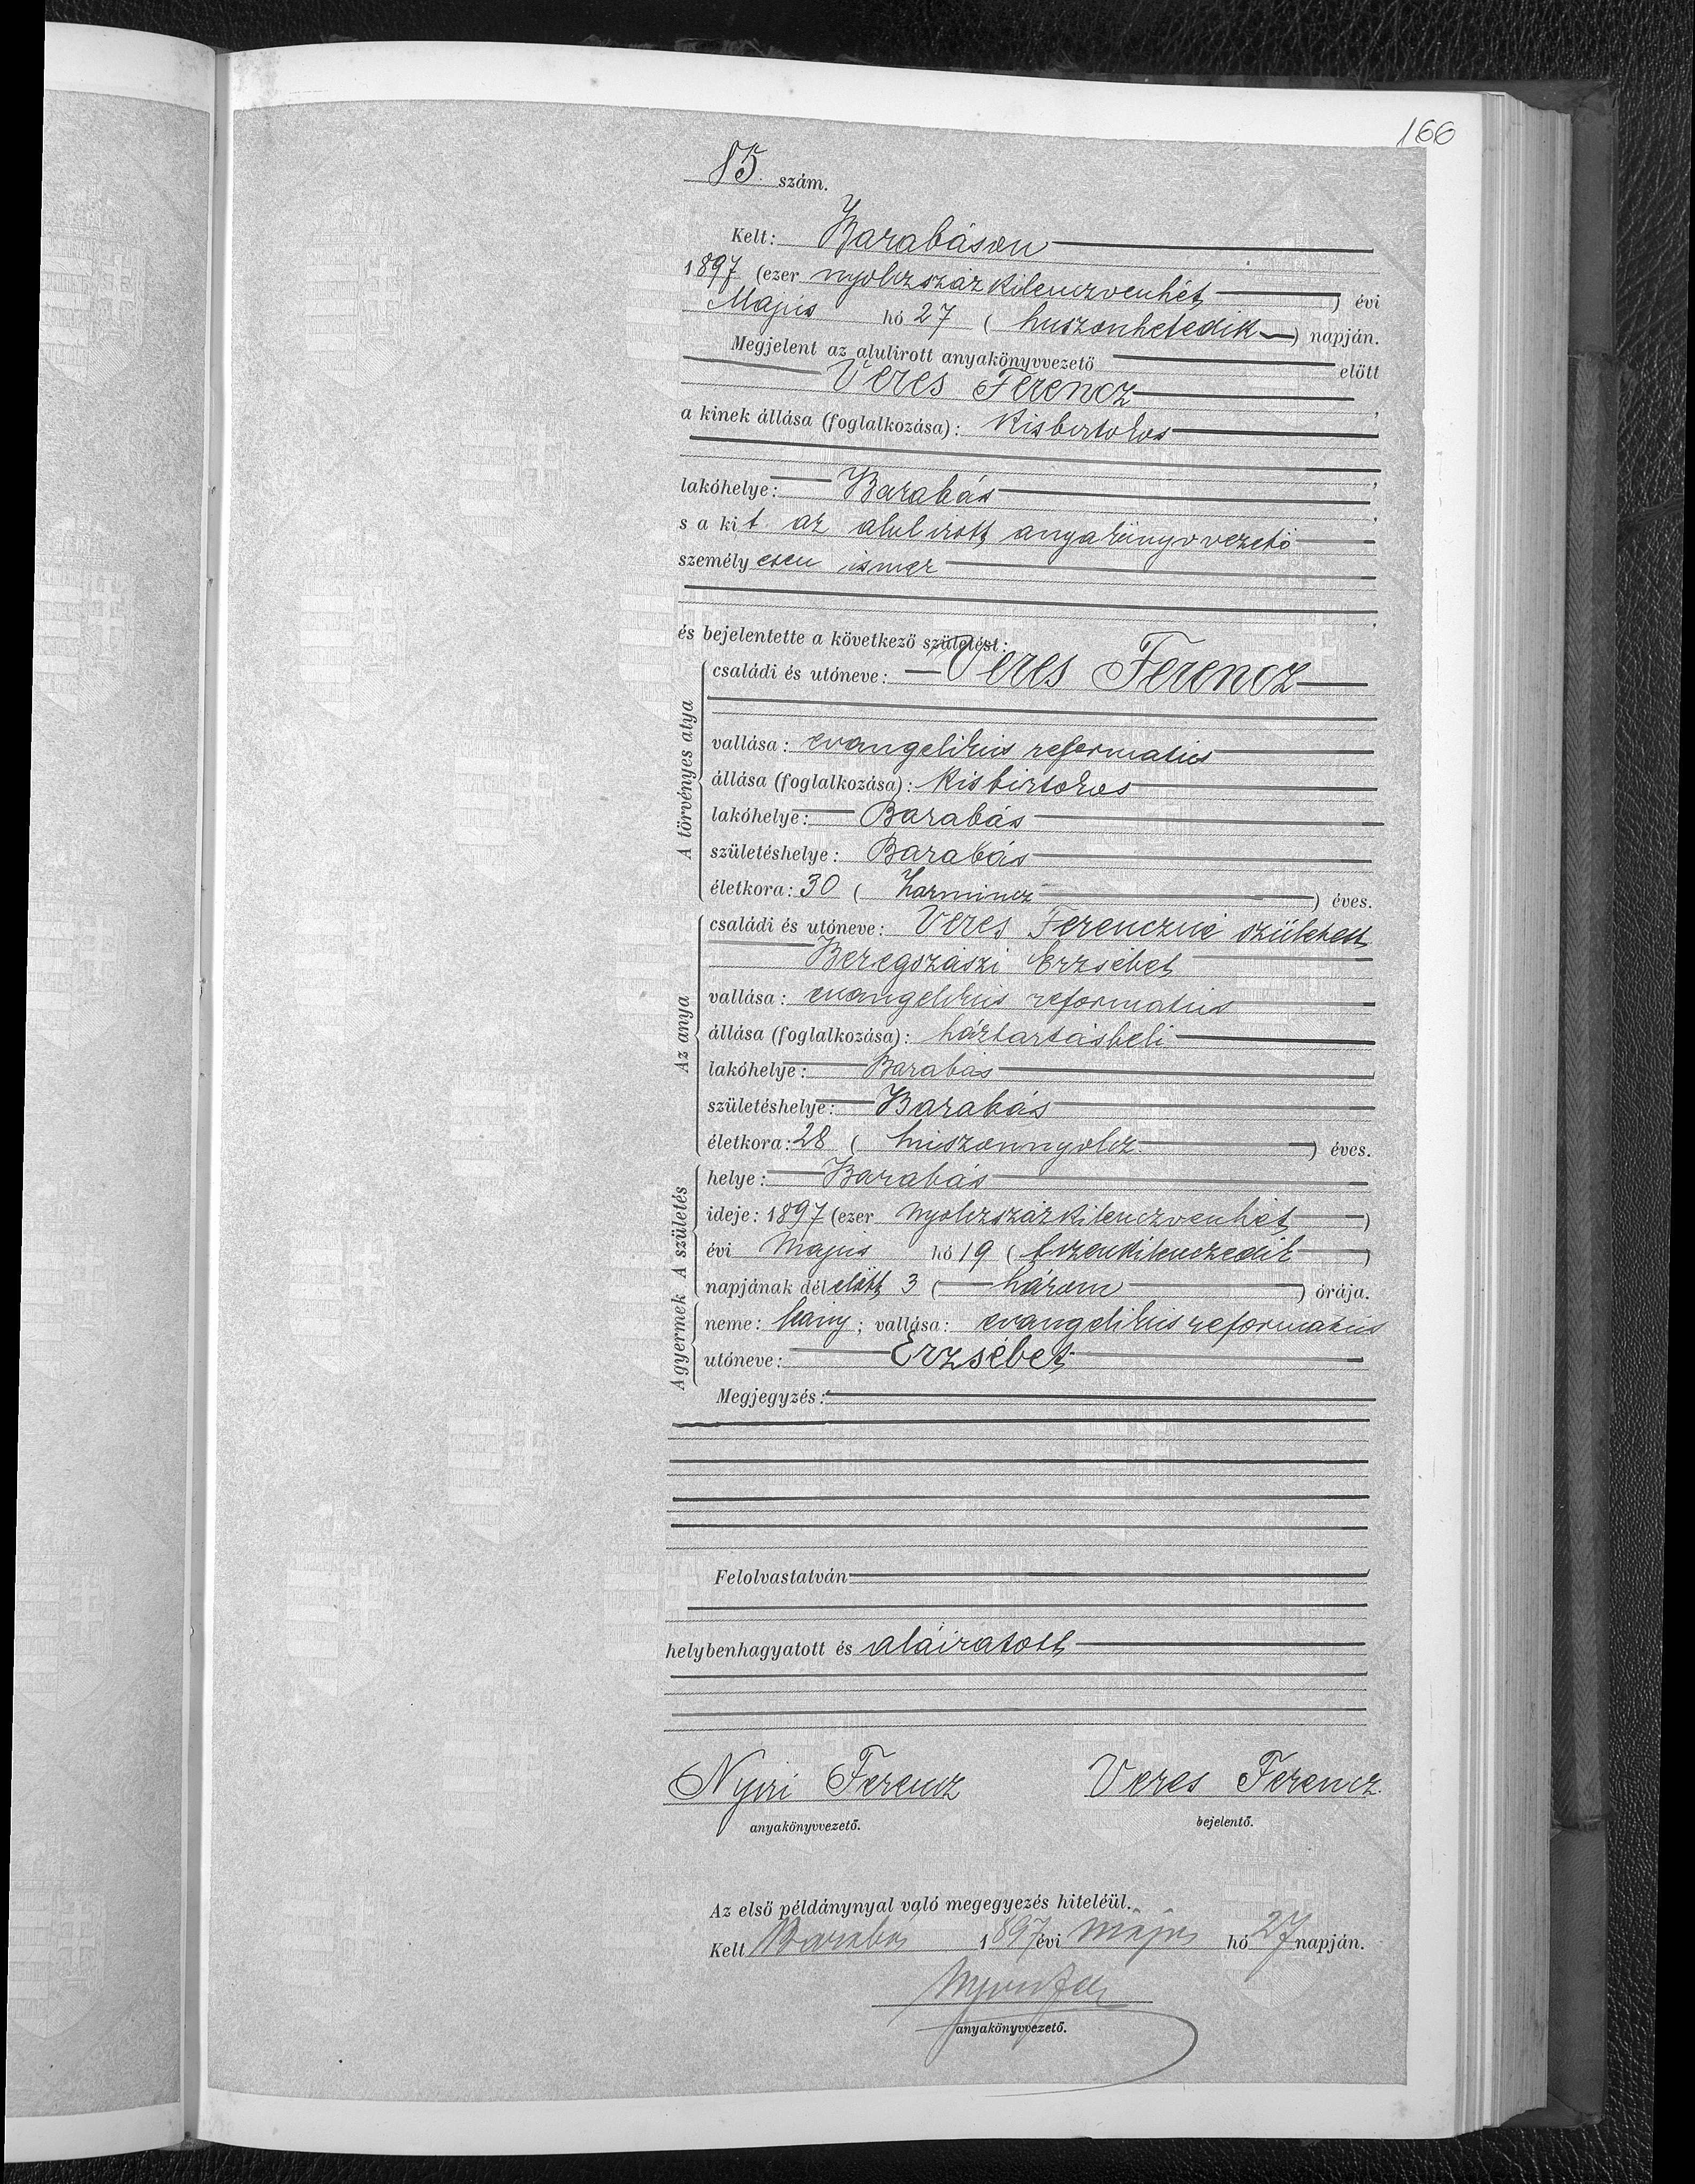 166
85. szám.
Kelt: Barabáson
1897 (ezer nyolczszáz kilenczvenhét) évi
Május hó 27 (huszonhetedik) napján.
Megjelent az alulirott anyakönyvvezető előtt
Veres Ferencz,
a kinek állása (foglalkozása): kisbirtokos
lakóhelye: Barabás,
s a kit az alulirott anyakönyvvezető
személyesen ismer
és bejelentette a következő születést:
A törvényes atya
családi és utóneve: Veres Ferencz
vallása: evangelikus reformatus
állása (foglalkozása): kisbirtokos
lakóhelye: Barabás
születéshelye: Barabás
életkora: 30 (harmincz) éves.
Az anya
családi és utóneve: Veres Ferenczné született
Beregszászi Erzsébet
vallása: evangelikus reformatus
állása (foglalkozása): háztartásbeli
lakóhelye: Barabás
születéshelye: Barabás
életkora: 28 (huszonnyolcz) éves.
A születés
helye: Barabás
ideje: 1897 (ezer nyolczszázkilenczvenhét)
évi Május hó 19 (tizenkilenczedik)
napjának délelőtt 3 (három) órája.
A gyermek
neme: leány; vallása: evangelikus reformatus
utóneve: Erzsébet
Megjegyzés:
Felolvastatván
helybenhagyatott és aláiratott
Nyiri Ferencz Veres Ferencz.
anyakönyvvezető. bejelentő.
Az első példánynyal való megegyezés hiteléül.
Kelt Barabás 1897 évi május hó 27 napján.
anyakönyvvezető.